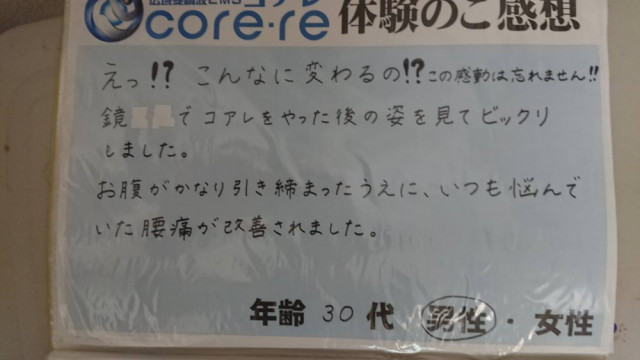 コアレ
core·re 体験のご感想
えっ!? こんなに変わるの!? この感動は忘れません!!
鏡 でコアレをやった後の姿を見てビックリ
しました。
お腹がかなり引き締まったうえに、いつも悩んで
いた腰痛が改善されました。
年齢 30 代 男性・女性